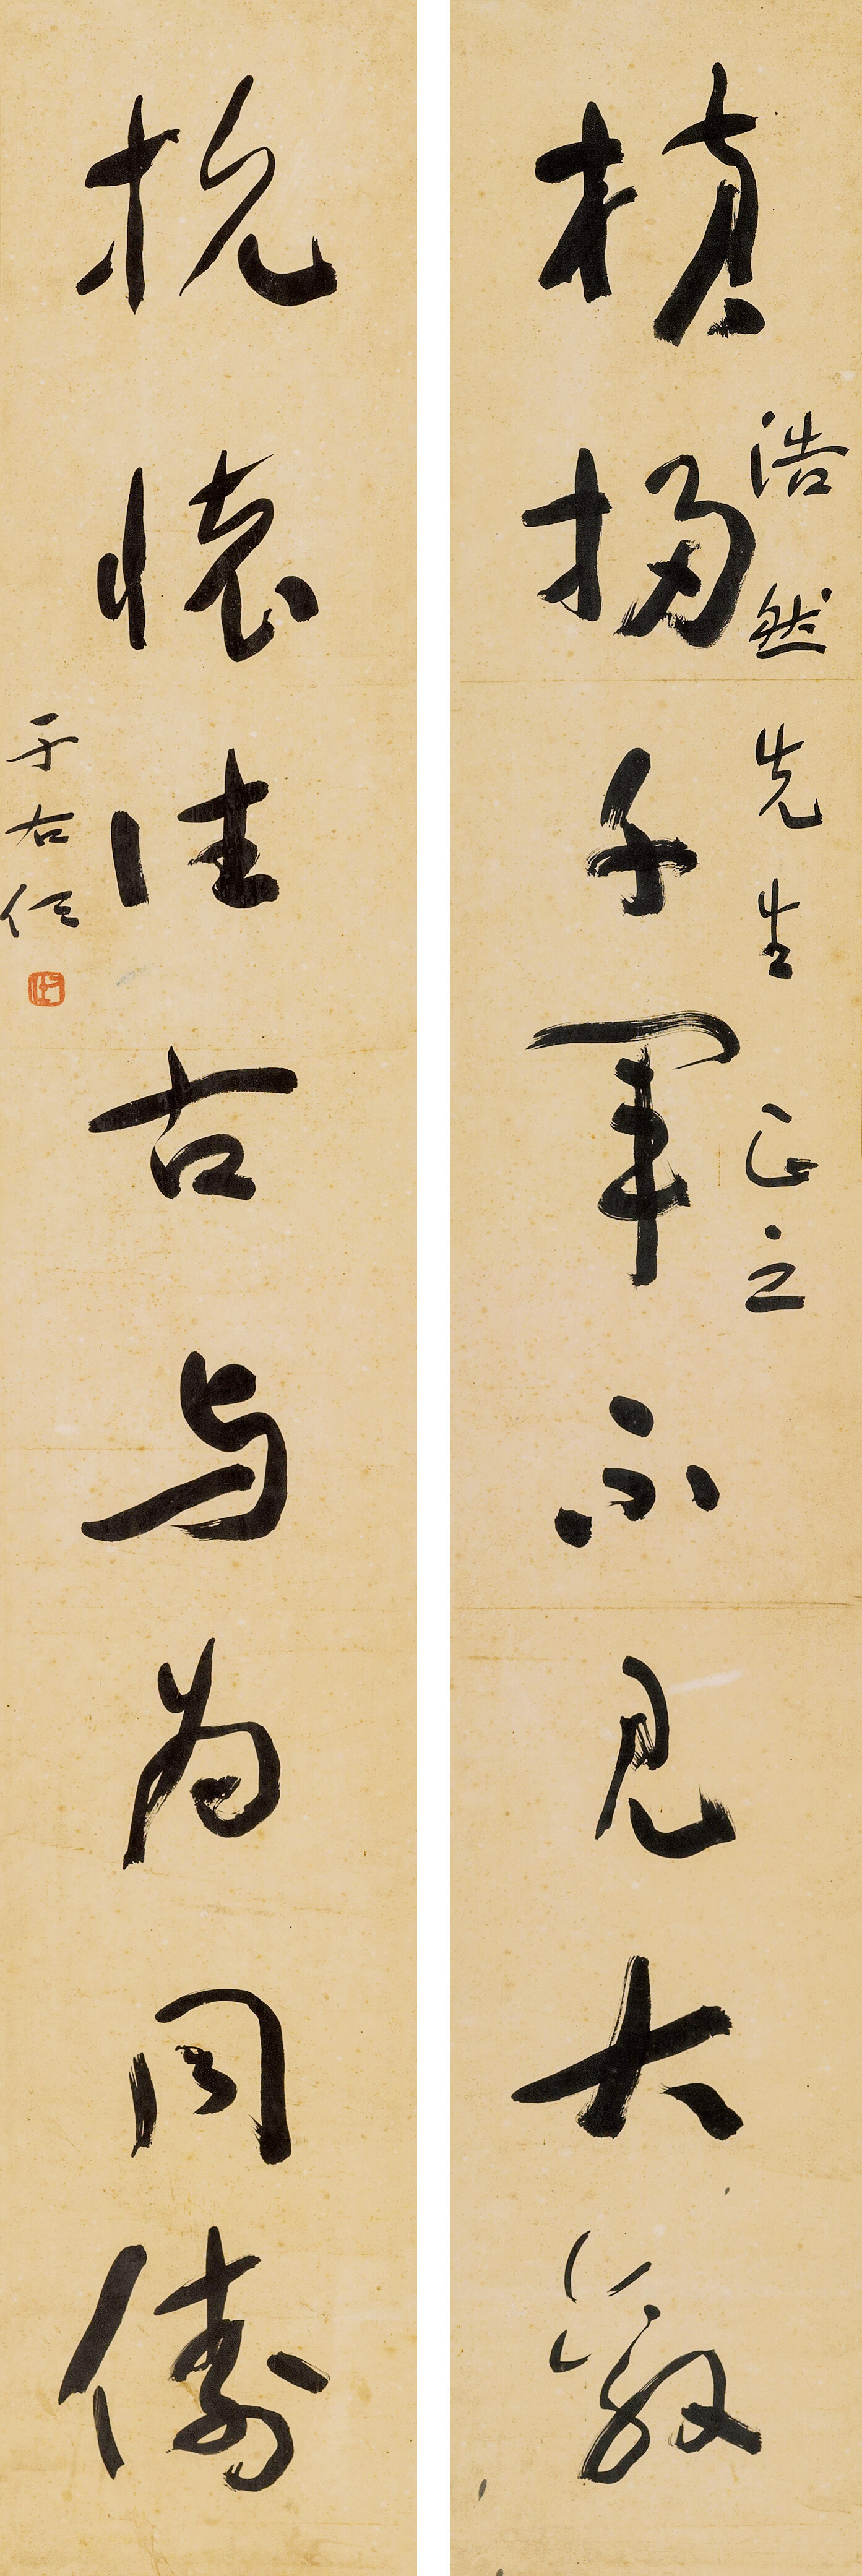 橫掃千軍不見大敵
浩然先生正之
抗懷往古与為同儔
于右任
右任